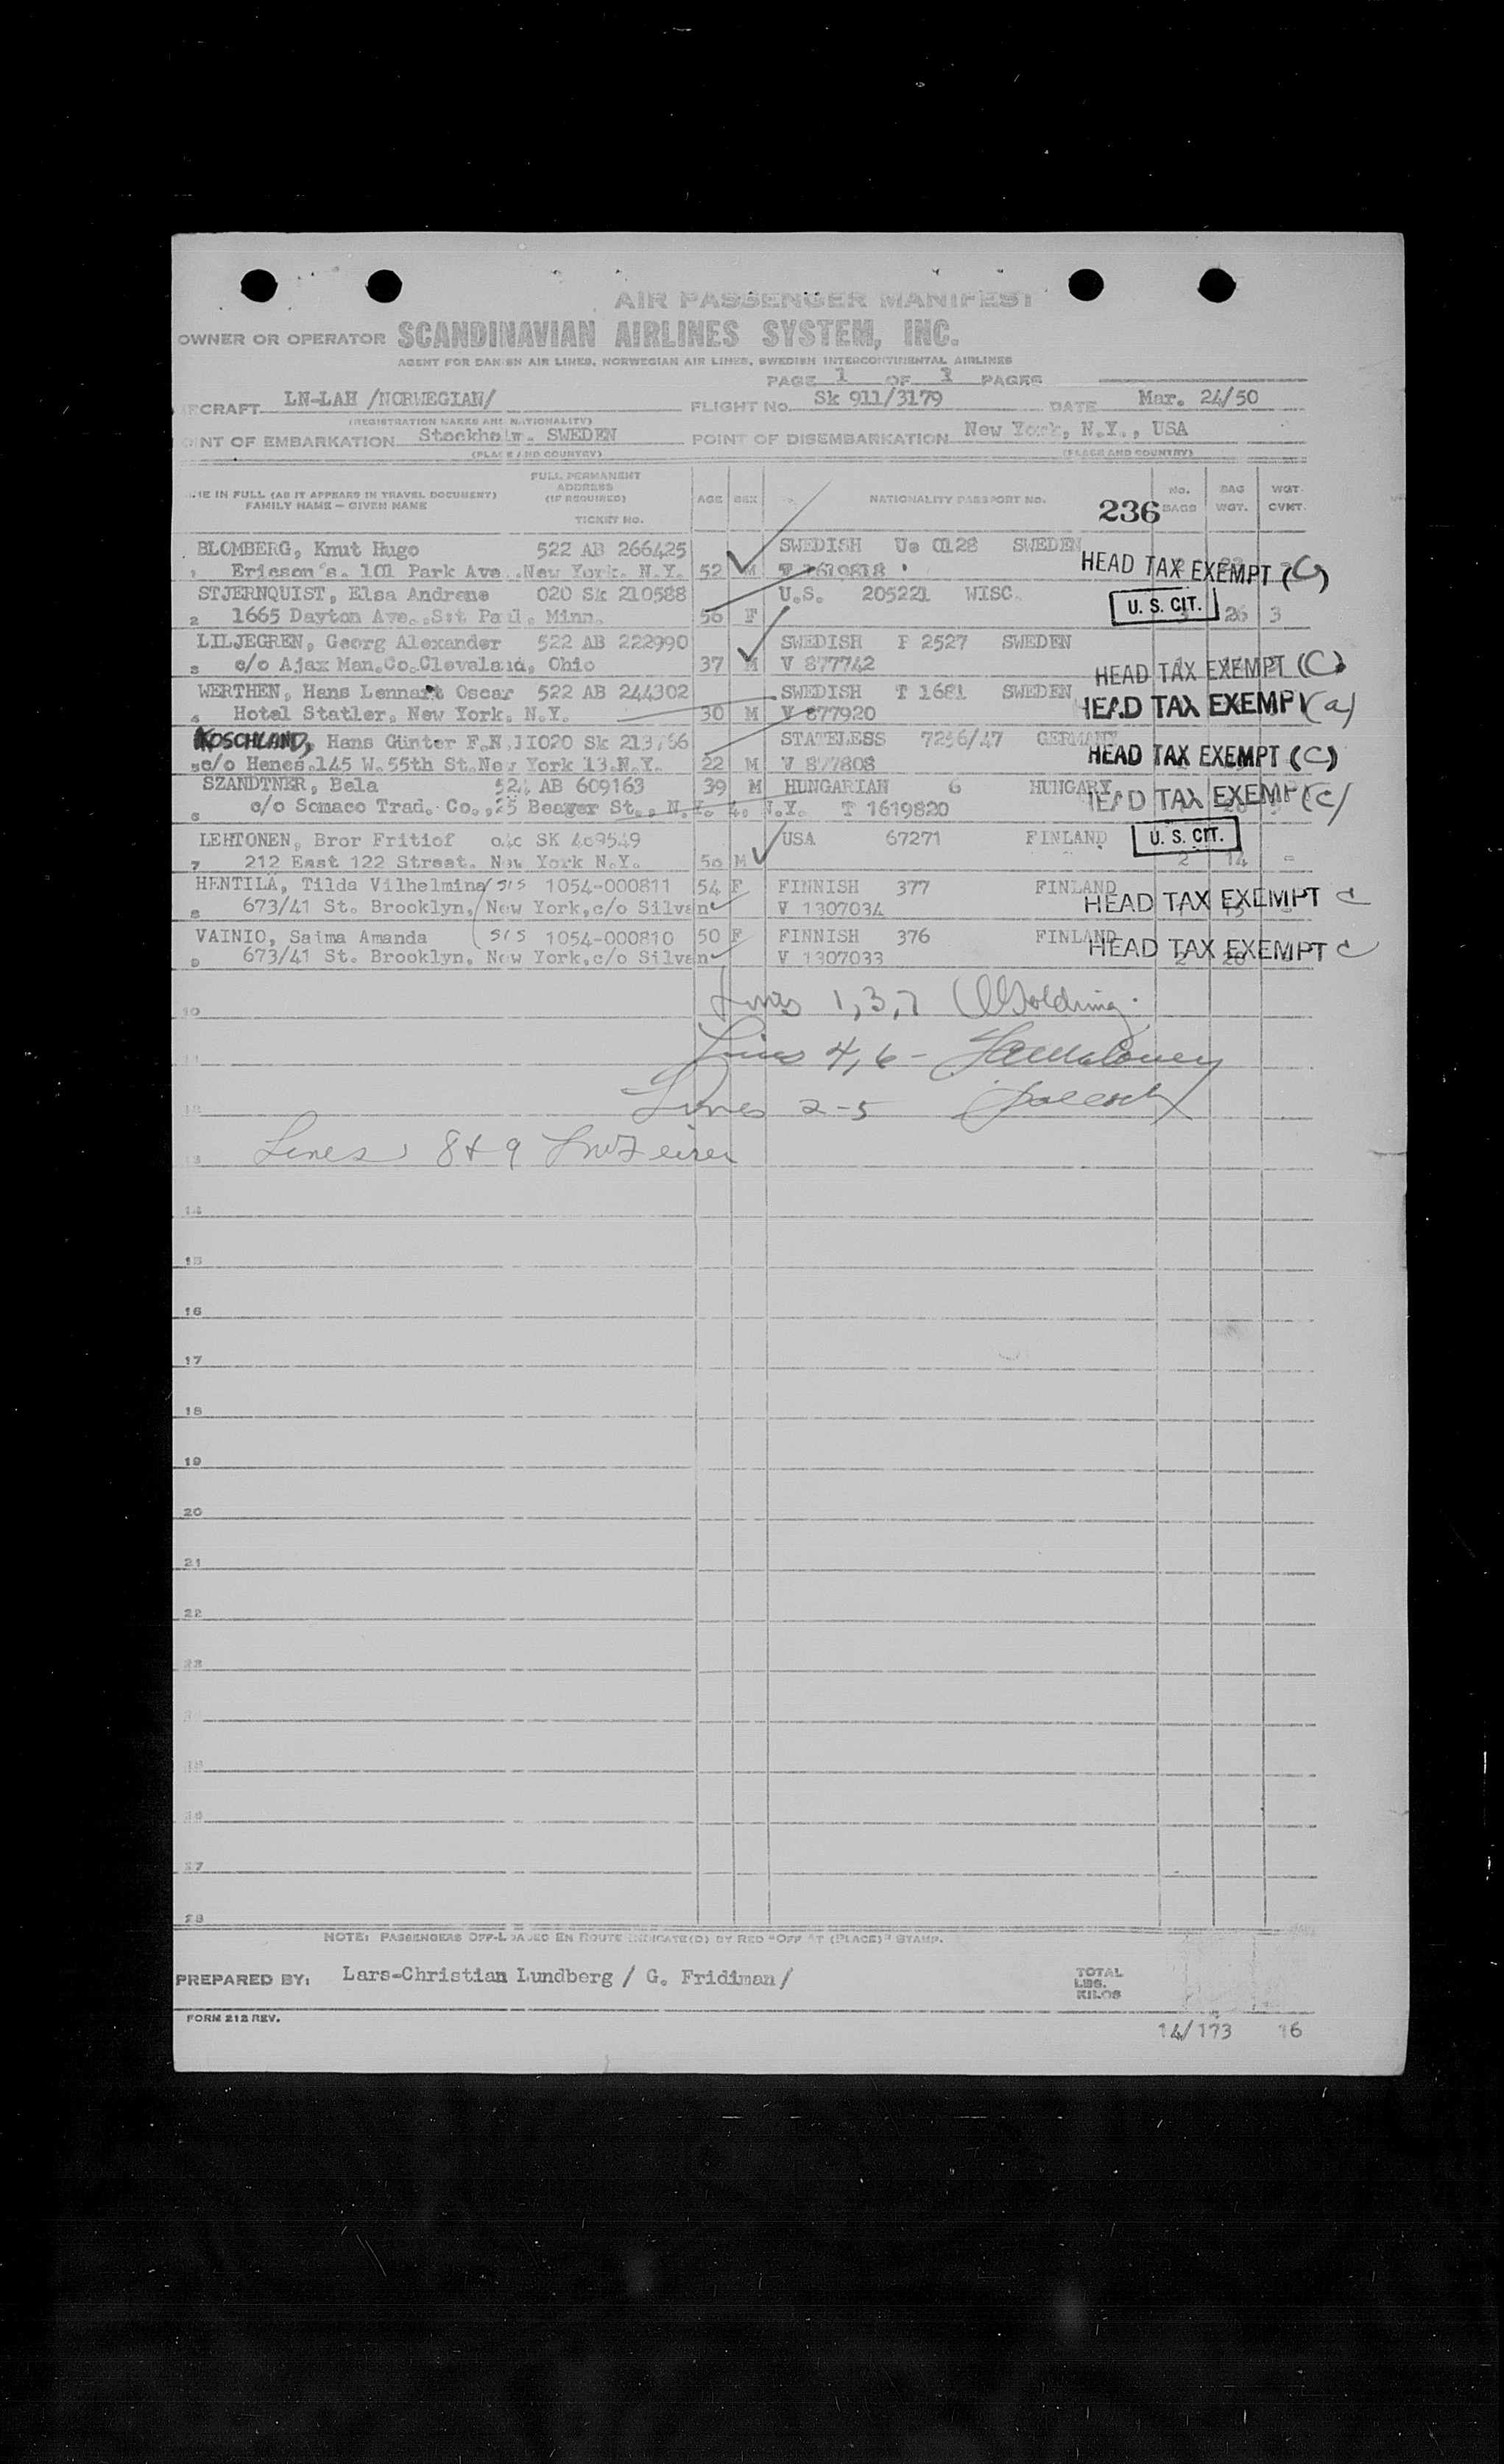 AIR PASSENGER MANIFEST
OWNER OR OPERATOR SCANDINAVIAN AIRLINES SYSTEM, INC.
AGENT FOR DANISH AIR LINES, NORWEGIAN AIR LINES, SWEDISH INTERCONTINENTAL AIRLINES
PAGE 1 OF 1 PAGES
CRAFT LN-LAH /NORWEGIAN/ FLIGHT No. Sk 911/3179 DATE Mar. 24/50
(REGISTRATION MARKS AND NATIONALITY)
OINT OF EMBARKATION Stockholm. SWEDEN POINT OF DISEMBARKATION New York, N.Y., USA
(PLACE AND COUNTRY) (PLACE AND COUNTRY)
ME IN FULL (AS IT APPEARS IN TRAVEL DOCUMENT) FAMILY NAME — GIVEN NAME FULL PERMANENT ADDRESS (IF REQUIRED) TICKET NO. AGE SEX NATIONALITY PASSPORT NO. 236 No. BAGS BAG WGT. WGT. CVMT.
BLOMBERG, Knut Hugo 522 AB 266425 SWEDISH Ue 0128 SWEDEN
1 Ericson's. 101 Park Ave..New York. N.Y. 52 M T 1619818 HEAD TAX EXEMPT (C)
STJERNQUIST, Elsa Andrene 020 Sk 210588 U.S. 205221 WISC.
2 1665 Dayton Ave..St Paul. Minn. 56 F U. S. CIT. 3 26 3
LILJEGREN, Georg Alexander 522 AB 222990 SWEDISH P 2527 SWEDEN
3 c/o Ajax Man.Co.Cleveland, Ohio 37 M V 877742 HEAD TAX EXEMPT (C)
WERTHEN, Hans Lennart Oscar 522 AB 244302 SWEDISH T 1681 SWEDEN
4 Hotel Statler, New York. N.Y. 30 M V 877920 HEAD TAX EXEMPT (a)
KOSCHLAND, Hans Günter F.N.II020 Sk 213766 STATELESS 7256/47 GERMANY
5 c/o Henes.145 W.55th St.New York 13.N.Y. 22 M V 877808 HEAD TAX EXEMPT (C)
SZANDTNER, Bela 524 AB 609163 39 M HUNGARIAN 6 HUNGARY
6 c/o Somaco Trad. Co.,25 Beaver St., N.Y. 4. N.Y. T 1619820 HEAD TAX EXEMPT (c)
LEHTONEN, Bror Fritiof SK 409549 USA 67271 FINLAND U. S. CIT.
7 212 East 122 Street. New York N.Y. 56 M 2 14 -
HENTILÄ, Tilda Vilhelmina 515 1054-000811 54 F FINNISH 377 FINLAND
8 673/41 St. Brooklyn, New York,c/o Silvan V 1307034 HEAD TAX EXEMPT C
VAINIO, Saima Amanda 515 1054-000810 50 F FINNISH 376 FINLAND
9 673/41 St. Brooklyn, New York,c/o Silvan V 1307033 HEAD TAX EXEMPT C
10 Lines 1,3,7
11 Lines 4,6 -
12 Lines 2-5
13 Lines 8 & 9
14
15
16
17
18
19
20
21
22
23
24
25
26
27
28
NOTE: PASSENGERS OFF-LOADED EN ROUTE INDICATE(D) BY RED "OFF AT (PLACE)" STAMP.
PREPARED BY: Lars-Christian Lundberg / G. Fridiman/ TOTAL LBS. KILOS
FORM 212 REV.
14/173 16